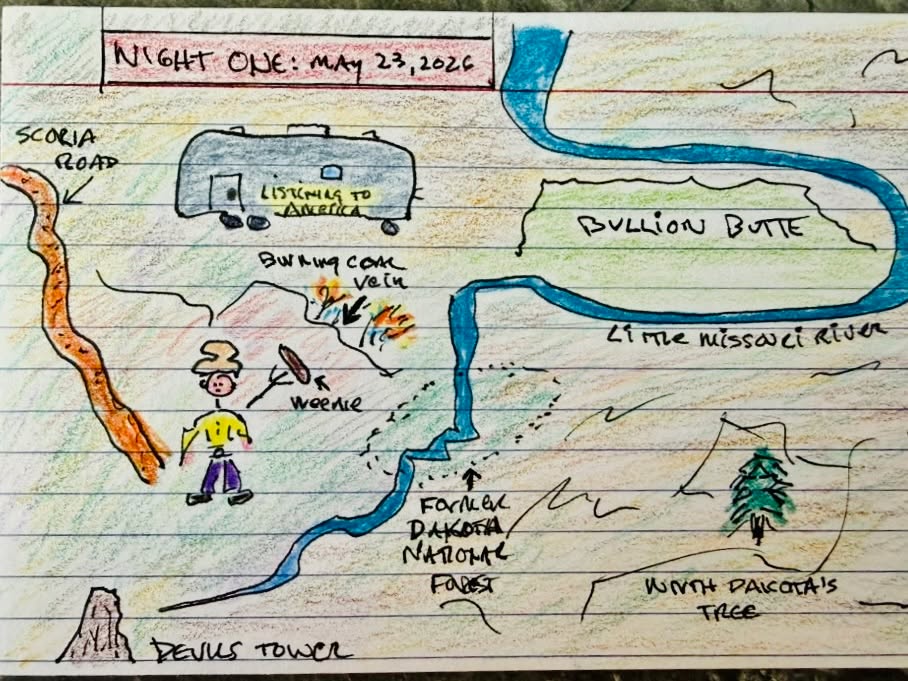 NIGHT ONE: MAY 23, 2026
SCORIA
ROAD
LISTENING TO
AMERICA
BURNING COAL
VEIN
BULLION BUTTE
LITTLE MISSOURI RIVER
WEENIE
FORMER
DAKOTA
NATIONAL
FOREST
NORTH DAKOTA'S
TREE
DEVILS TOWER